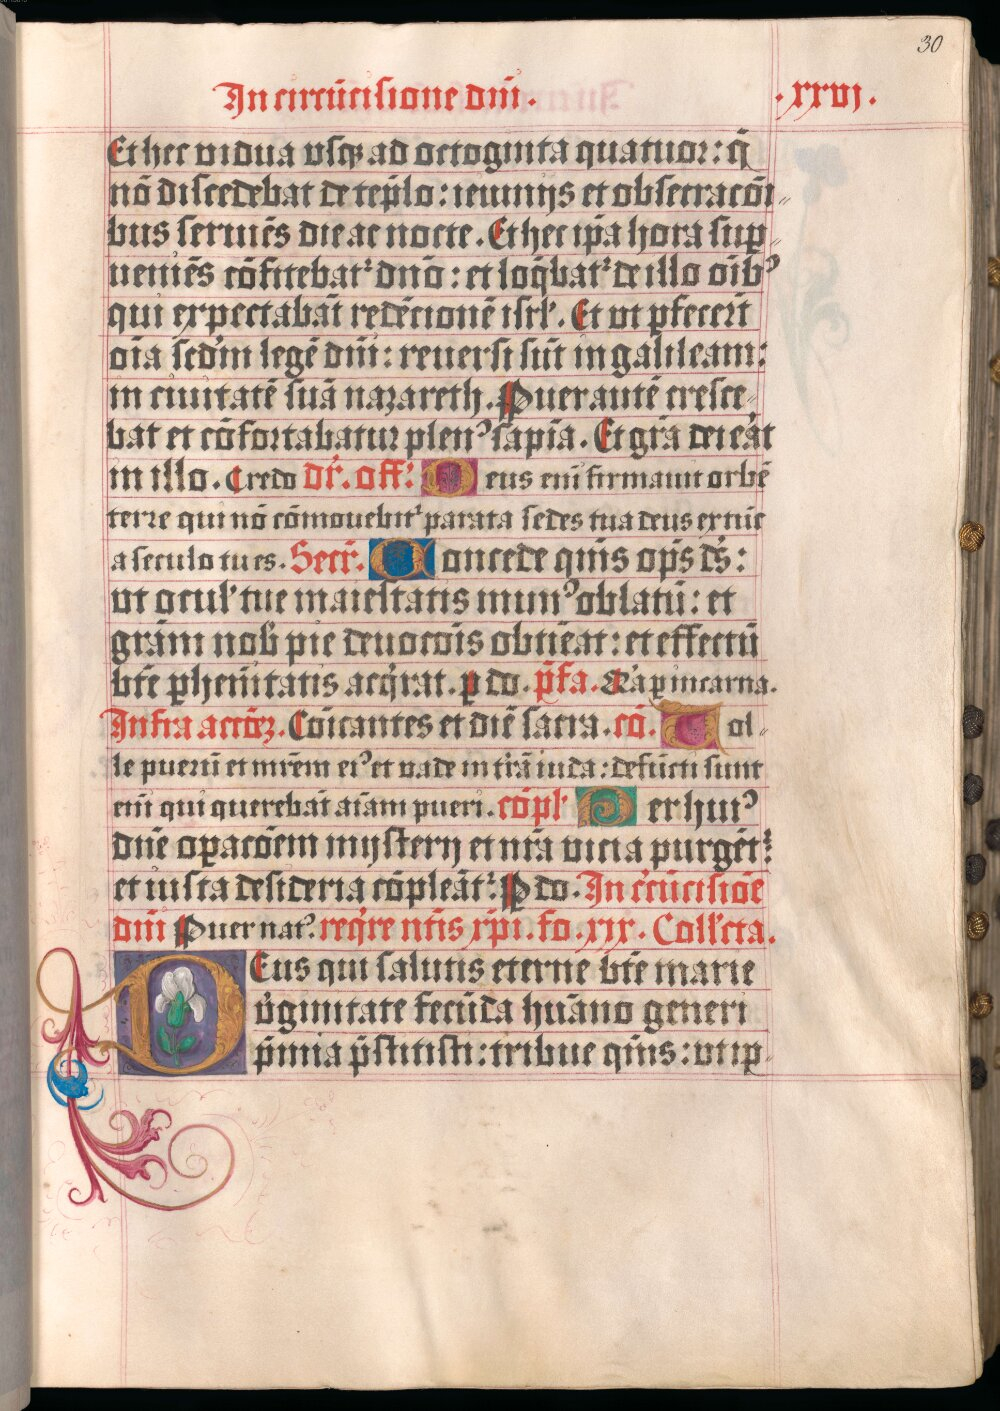 30
In circūcisione dnī.
.xxvj.
Et hec vidua vsqꝫ ad octoginta quatuor: q̄
nō discedebat de tēplo: ieiunijs et obsecracōi⸗
bus seruiēs die ac nocte. Et hec ip̄a hora suꝑ⸗
ueniēs cōfitebatᷣ dnō: et loq̄batᷣ de illo oīb⁹
qui expectabāt redēcionē isrl'. Et vt ꝑfecerūt
oīa scd'm legē dnī: reuersi sūt in galileam:
in ciuitatē suā nazareth. Puer autē cresce⸗
bat et cōfortabatur plen⁹ sapīa. Et gr̄a dei erat
in illo. Credo dr̄. off: Deus eni firmauit orbē
terre qui nō cōmouebitᷣ parata sedes tua deus ex tūc
a seculo tu es. Secr̄. Concede qm̄s op̄s ds̄:
vt ocul' tue maiestatis mun⁹ oblatū: et
gr̄am nob̄ pie deuocōis obtīeat: et effectū
btē ꝑhenītatis acq̄rat. ꝑ do. p̄fa. Q'a ꝑ incarna.
Infra accōꝫ. Cōicantes et diē sacra. cō. Tol⸗
le puerū et mr̄em ei⁹ et vade in tr̄a iuda: defūcti sunt
enī qui querebāt aīam pueri. cōpl' Per hui⁹
dnē oꝑacōem mysterij et nr̄a vicia purgētᷣ:
et iusta desideria cōpleātᷣ: P do. In c̄cūcisiōe
dnī Puer nat⁹. req̄re nt̄is xp̄i. fo. xix. Coll'cta.
Deus qui salutis eterne btē marie
v̄ginitate fecūda hūano generi
p̄mia p̄stitisti: tribue qm̄s: vt ip̄⸗